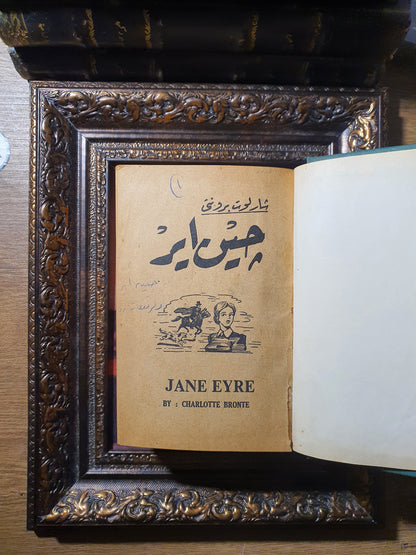 ١
شارلوت برونتي
چين اير
JANE EYRE
BY : CHARLOTTE BRONTE